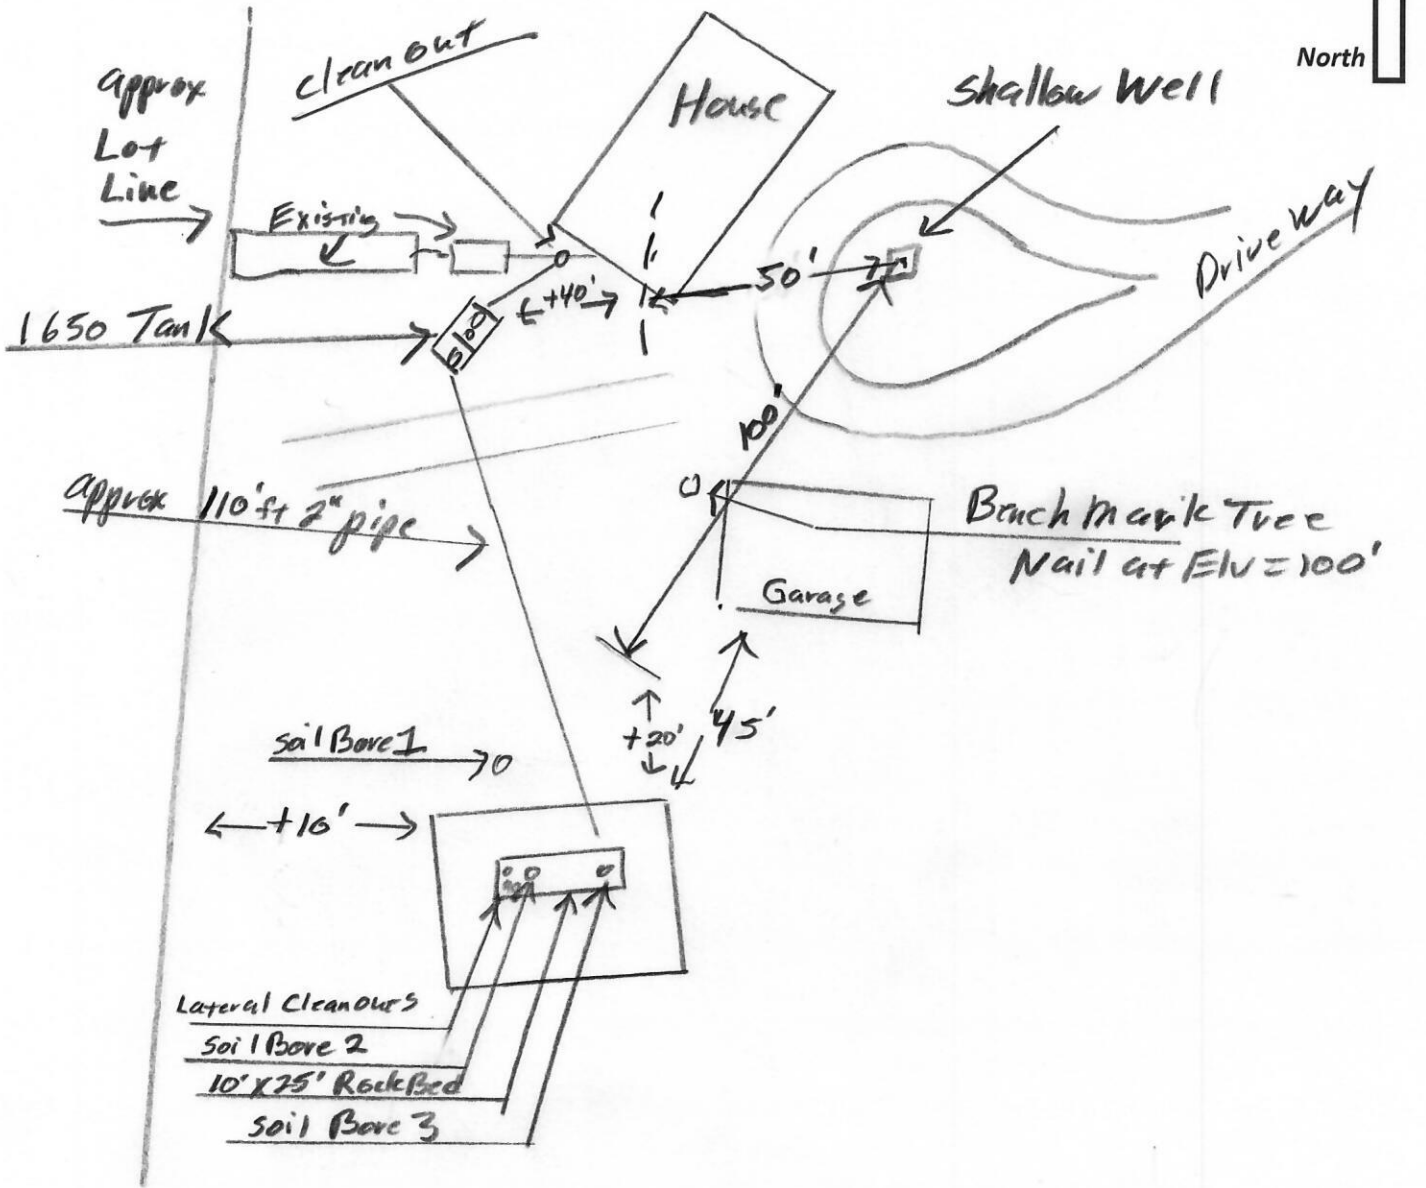 North
cleanout
approx
Lot
Line
House
Shallow Well
Driveway
Existing
50'
+40'
1650 Tank
100'
approx 110'ft 2" pipe
Bench Mark Tree
Nail at Elv = 100'
Garage
+20'
45'
soil Bore 1
+10'
Lateral Cleanouts
Soil Bore 2
10' x 25' Rock Bed
Soil Bore 3